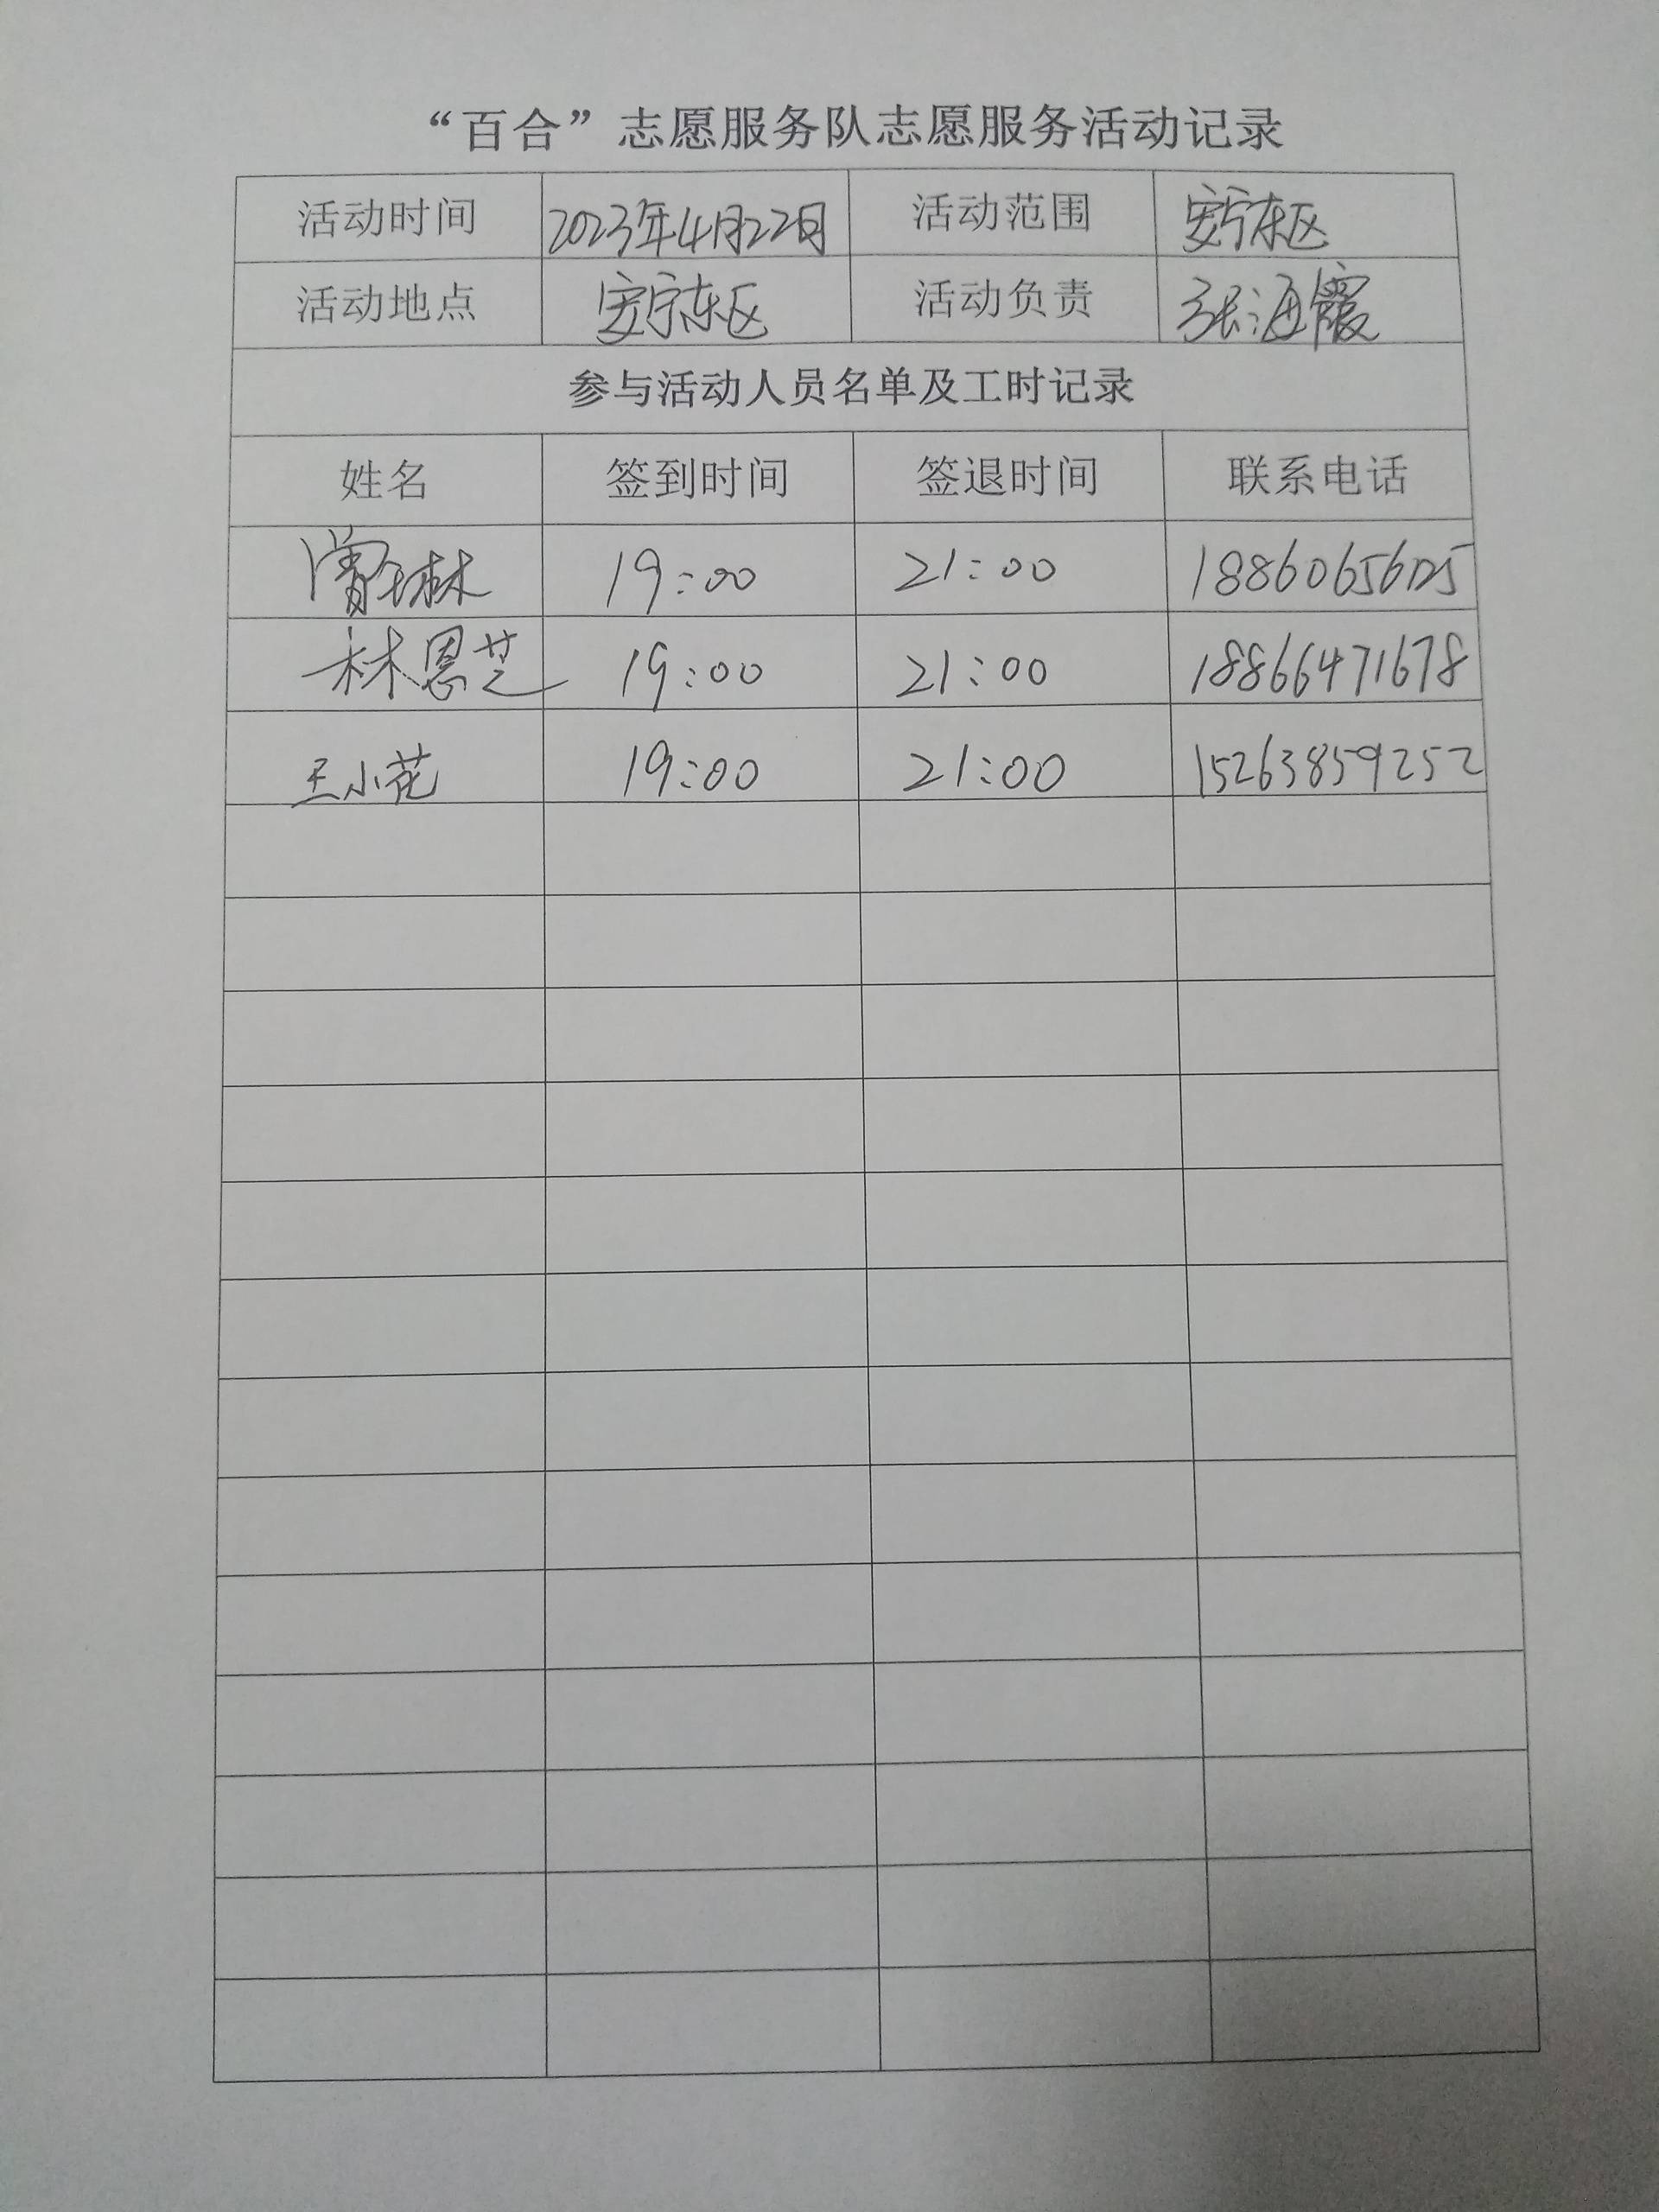 “百合”志愿服务队志愿服务活动记录
活动时间 2023年4月22日 活动范围 安宁东区
活动地点 安宁东区 活动负责 张海霞
参与活动人员名单及工时记录
姓名 签到时间 签退时间 联系电话
19:00 21:00
林恩芝 19:00 21:00 18866471678
王小花 19:00 21:00 15263859252